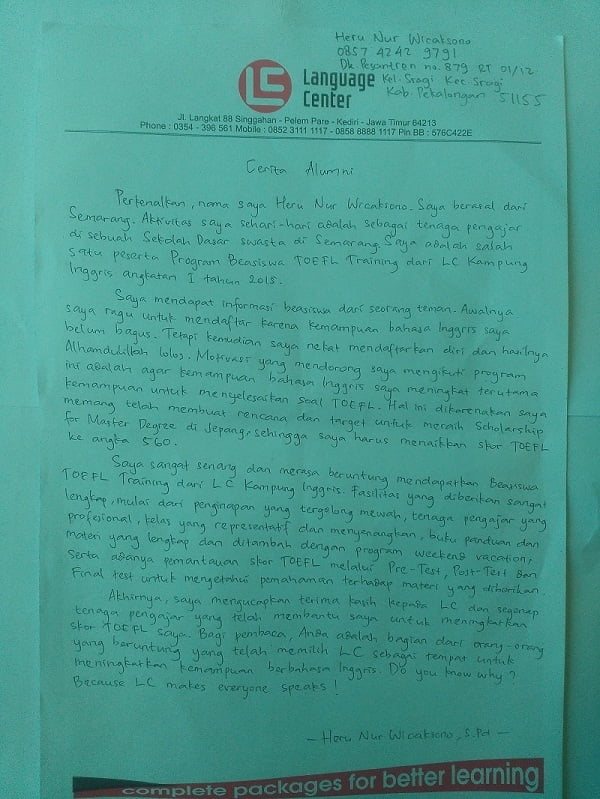 Heru Nur Wicaksono
0857 4242 9791
Dk. Pesantren no. 879 RT 01/12
Kel. Sragi Kec. Sragi
Kab. Pekalongan 51155
LC Language
Center
Jl. Langkat 88 Singgahan - Pelem Pare - Kediri - Jawa Timur 64213
Phone : 0354 - 396 561 Mobile : 0852 3111 1117 - 0858 6888 1117 Pin BB : 576C422E
Cerita Alumni
Perkenalkan, nama saya Heru Nur Wicaksono. Saya berasal dari
Semarang. Aktivitas saya sehari-hari adalah sebagai tenaga pengajar
di sebuah Sekolah Dasar swasta di Semarang. Saya adalah salah
satu peserta Program Beasiswa TOEFL Training dari LC Kampung
Inggris angkatan I tahun 2015.
Saya mendapat informasi beasiswa dari seorang teman. Awalnya
saya ragu untuk mendaftar karena kemampuan bahasa Inggris saya
belum bagus. Tetapi kemudian saya nekat mendaftarkan diri dan hasilnya
Alhamdulillah lolos. Motivasi yang mendorong saya mengikuti program
ini adalah agar kemampuan bahasa Inggris saya meningkat terutama
kemampuan untuk menyelesaikan soal TOEFL. Hal ini dikarenakan saya
memang telah membuat rencana dan target untuk meraih Scholarship
for Master Degree di Jepang, sehingga saya harus menaikkan skor TOEFL
ke angka 560.
Saya sangat senang dan merasa beruntung mendapatkan Beasiswa
TOEFL Training dari LC Kampung Inggris. Fasilitas yang diberikan sangat
lengkap, mulai dari penginapan yang tergolong mewah, tenaga pengajar yang
profesional, kelas yang representatif dan menyenangkan, buku panduan dan
materi yang lengkap dan ditambah dengan program weekend vacation,
serta adanya pemantauan skor TOEFL melalui Pre-Test, Post-Test dan
Final test untuk mengetahui pemahaman terhadap materi yang diberikan
Akhirnya, saya mengucapkan terima kasih kepada LC dan segenap
tenaga pengajar yang telah membantu saya untuk meningkatkan
skor TOEFL saya. Bagi pembaca, Anda adalah bagian dari orang-orang
yang beruntung yang telah memilih LC sebagai tempat untuk
meningkatkan kemampuan berbahasa Inggris. Do you know why?
Because LC makes everyone speaks!
- Heru Nur Wicaksono, S.Pd -
complete packages for better learning